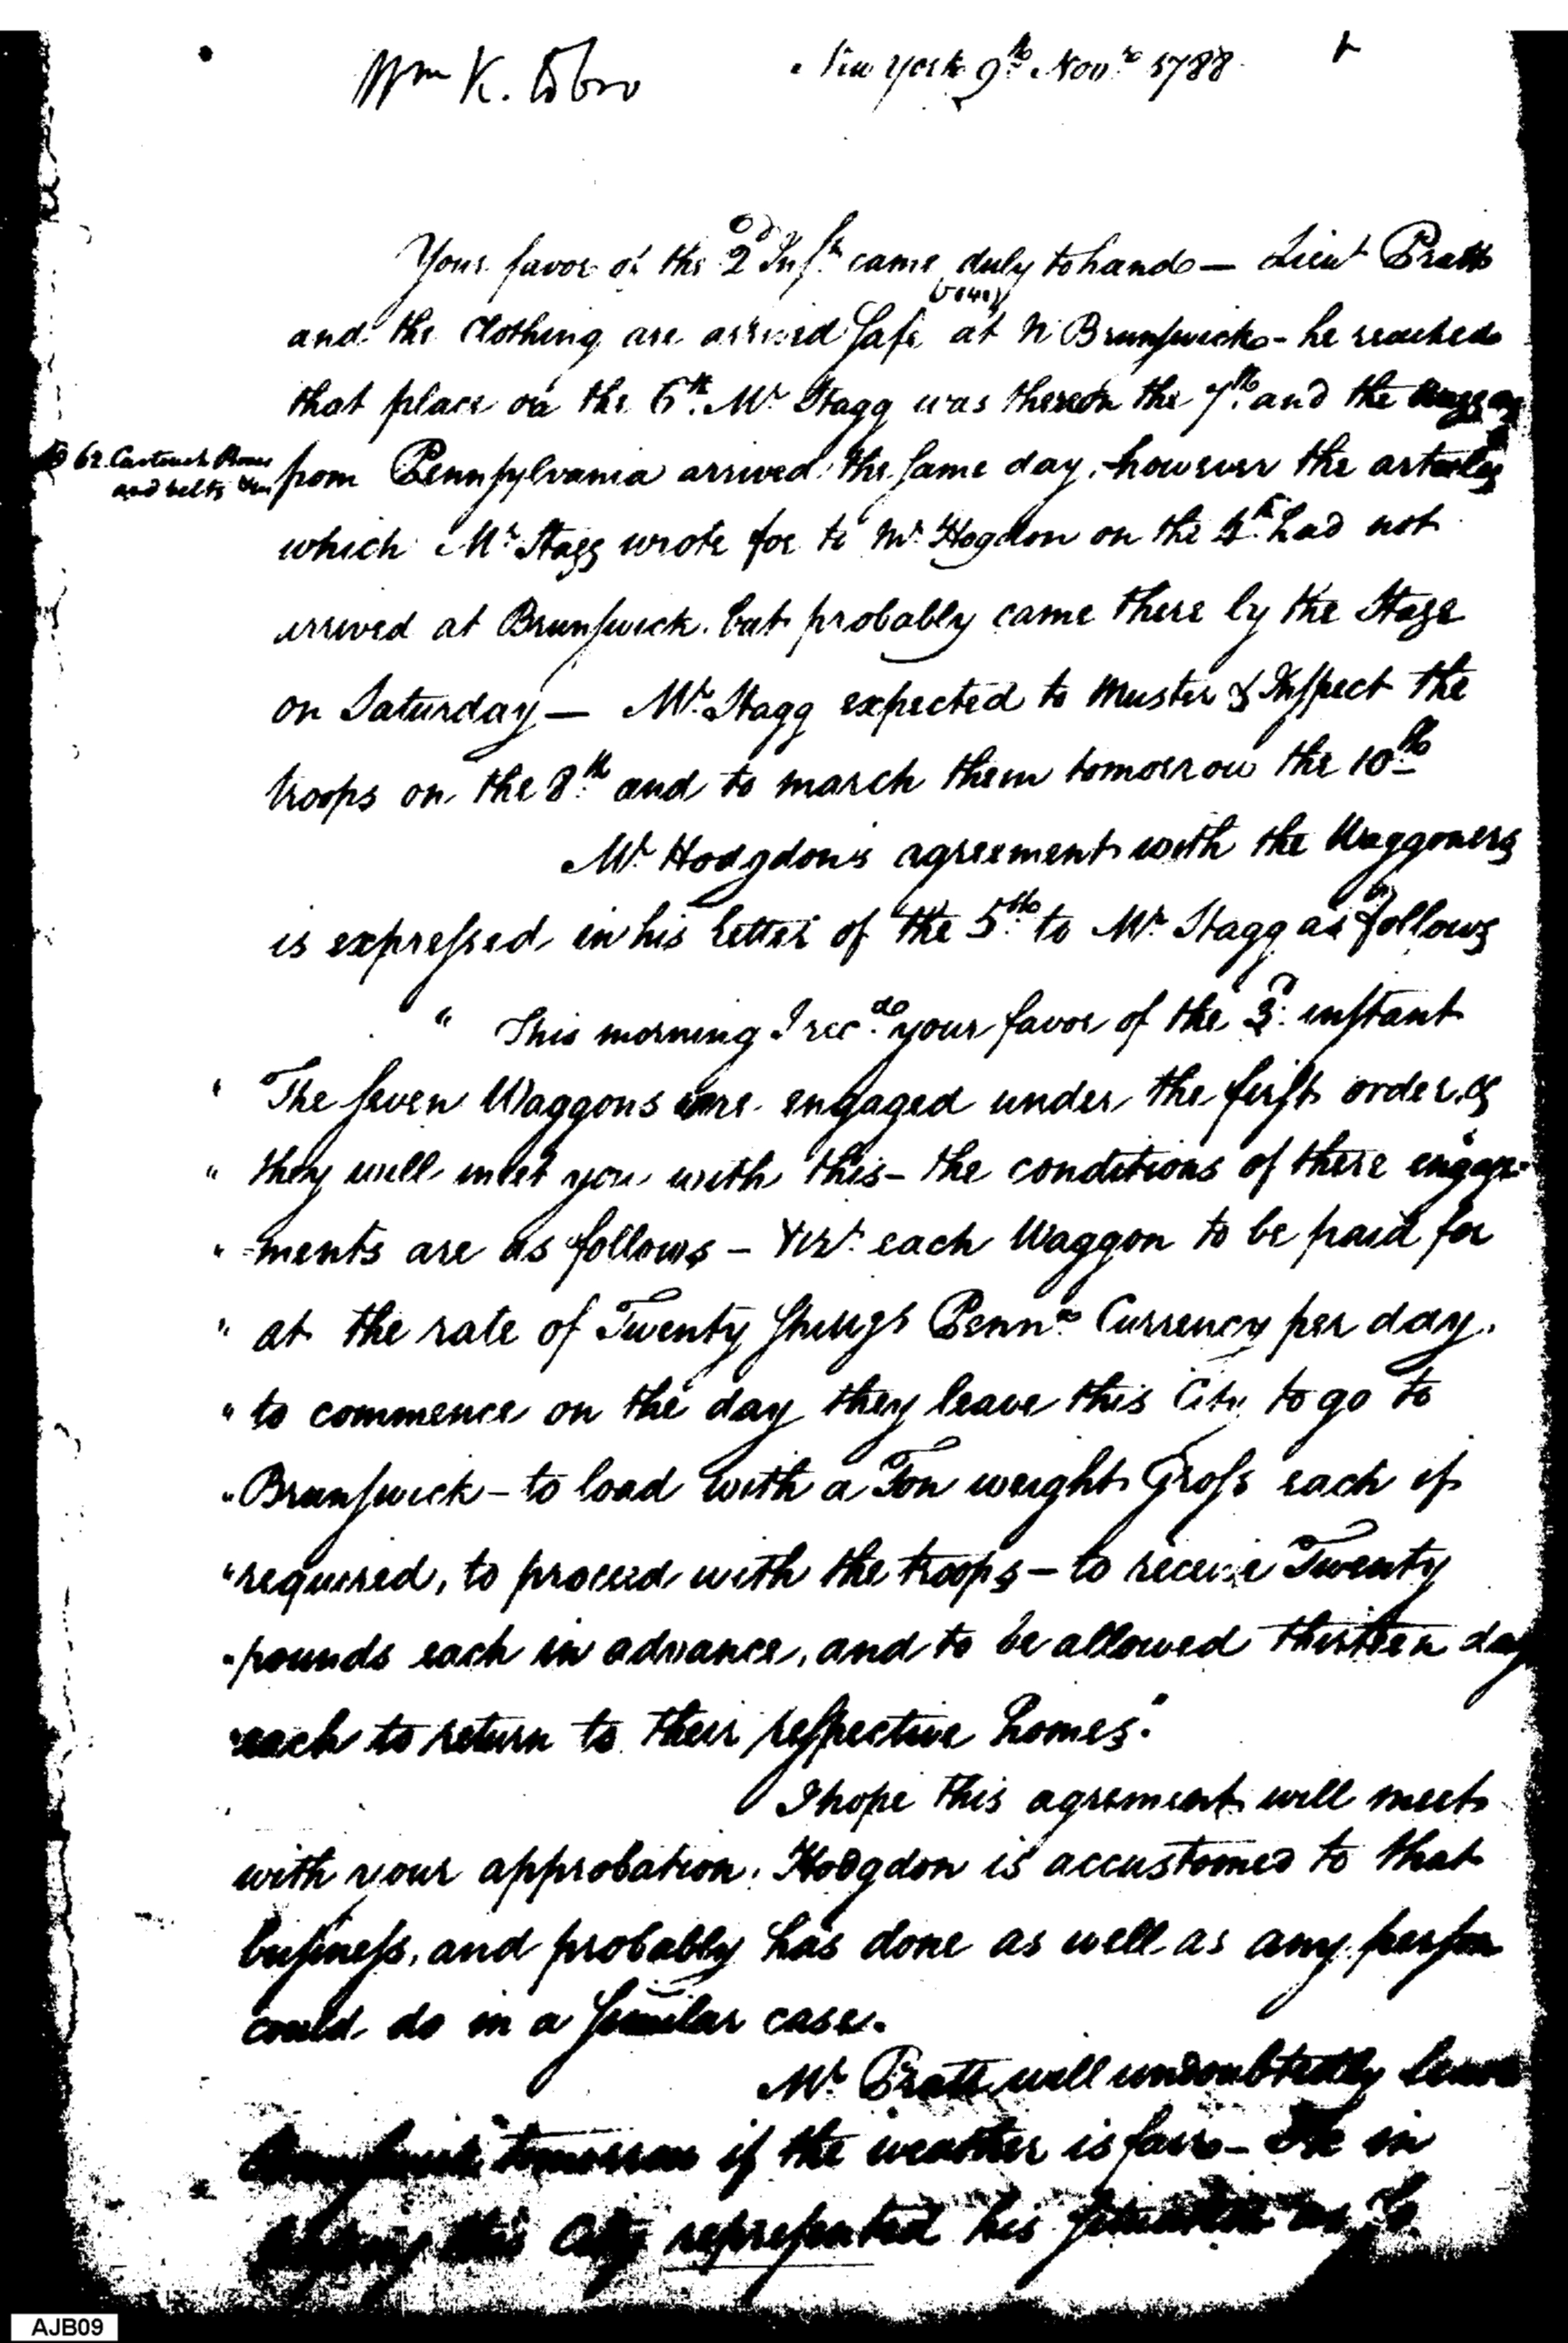 Wm K.
New York 9th Novr 1788
Your favor of the 2d Inst. came duly to hand — Lieut Pratt
and the Clothing are arrived safe at N Brunswick - he reached
that place on the 6th. Mr Stagg was there on the 7th. and the
62 Cartouch Boxes
and belts
from Pennsylvania arrived the same day. however the articles
which Mr Stagg wrote for to Mr Hogdon on the had not
arrived at Brunswick. but probably came there by the Stage
on Saturday — Mr Stagg expected to Muster & Inspect the
troops on the 8th. and to march them tomorrow the 10th
Mr Hodgdon's agreement with the Waggoners
is expressed in his Letter of the 5th. to Mr Stagg as follows
" This morning I recd. your favor of the 3d. instant
" The seven Waggons were engaged under the first order, &
" they will meet you with this - the conditions of there engage-
" -ments are as follows - Vizt. each Waggon to be paid for
" at the rate of Twenty Penna Currency per day.
" to commence on the day they leave this City to go to
" Brunswick - to load with a Ton weight Gross each if
" required, to proceed with the troops - to receive Twenty
" pounds each in advance, and to be allowed thirteen days
" each to return to their respective homes."
I hope this agreement will meet
with your approbation. Hodgdon is accustomed to that
business, and probably has done as well as any person
could do in a similar case.
Mr Pratt will undoubtedly leave
tomorrow if the weather is fair - He in
this City represented his
AJB09